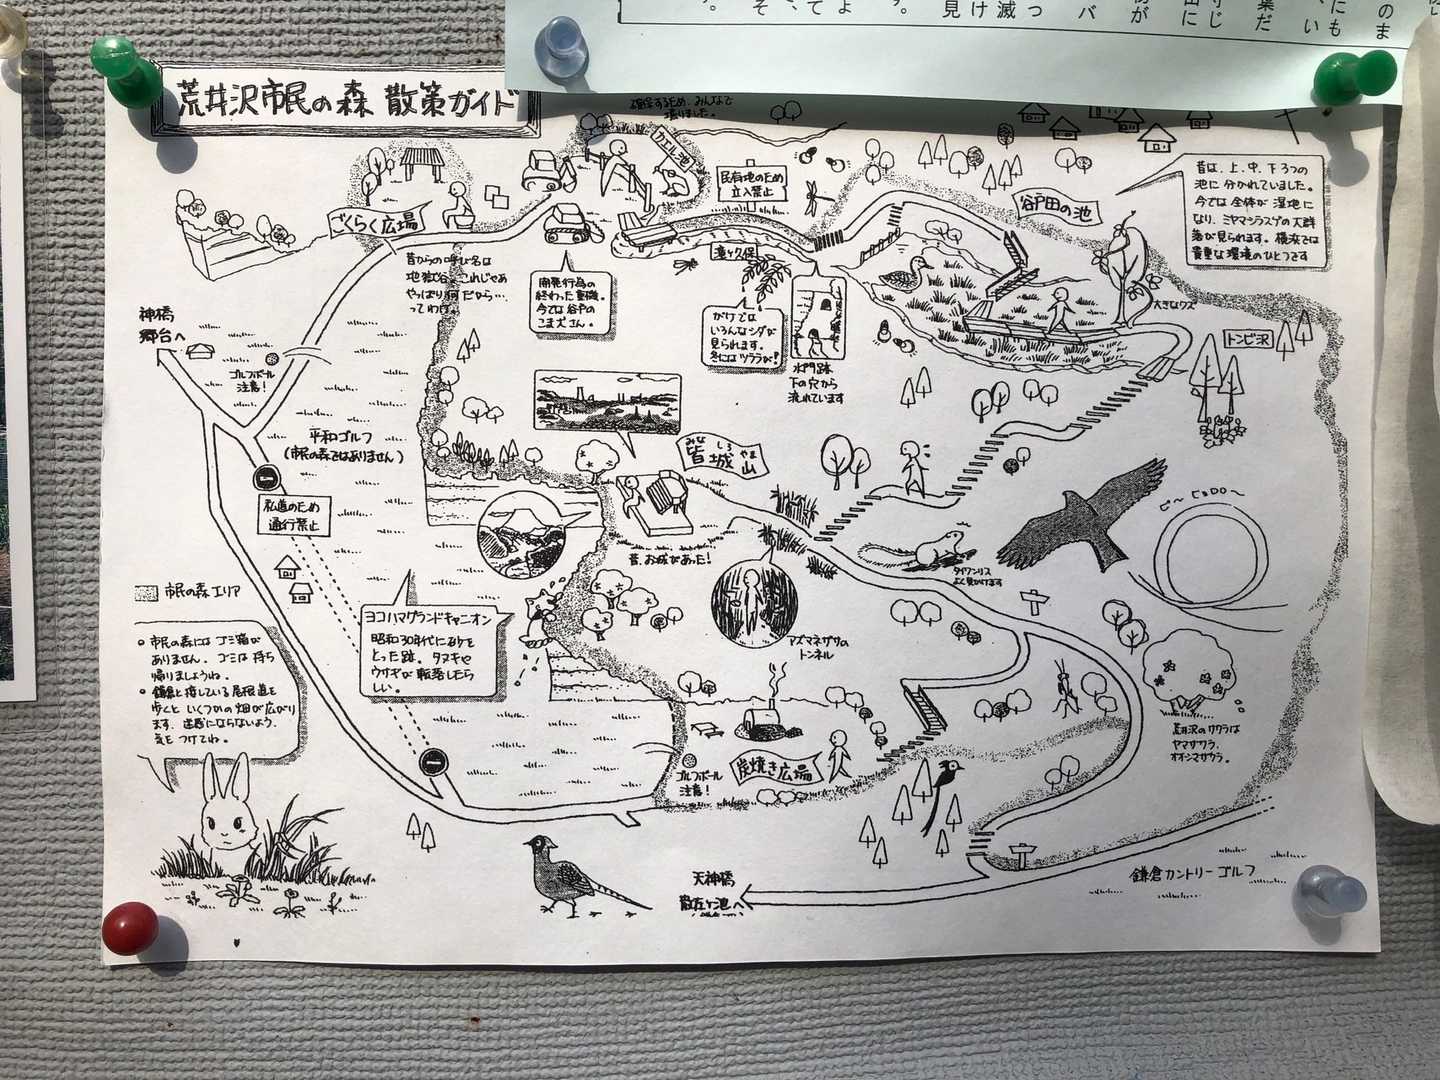 荒井沢市民の森 散策ガイド
確保するため、みんなで
堀りました。
カエル池
民有地のため
立入禁止
谷戸田の池
昔は、上、中、下3つの
池に分かれていました。
今では全体が湿地に
なり、ミヤマシラスゲの大群
落が見られます。横浜では
貴重な環境のひとつです
ごくらく広場
昔からの呼び名は
やっぱり何だから…
ってわけ。
開発行為の
終わった重機。
今では谷戸の
こま犬さん。
滝ヶ久保
がけでは
いろんなシダが
見られます。
冬にはツララが!
水門跡
下の穴から
流れています
大きなクズ
トンビ沢
神橋
郷台へ
ゴルフボール
注意!
平和ゴルフ
(市民の森ではありません)
私道のため
通行禁止
みな しろ やま
皆城山
昔、お城があった!
ピ〜ヒョロロ〜
タイワンリス
よく見かけます
市民の森エリア
市民の森にはゴミ箱が
ありません。ゴミは持ち
帰りましょうね。
鎌倉と接している尾根道を
歩くといくつかの畑が広がり
ます。迷惑にならないよう、
気をつけてね。
ヨコハマグランドキャニオン
昭和30年代に砂を
とった跡。タヌキや
ウサギが転落したら
しい。
アズマネザサの
トンネル
荒井沢のサクラは
ヤマザクラ、
オオシマザクラ。
ゴルフボール
注意!
炭焼き広場
鎌倉カントリーゴルフ
天神橋
散在ヶ池へ